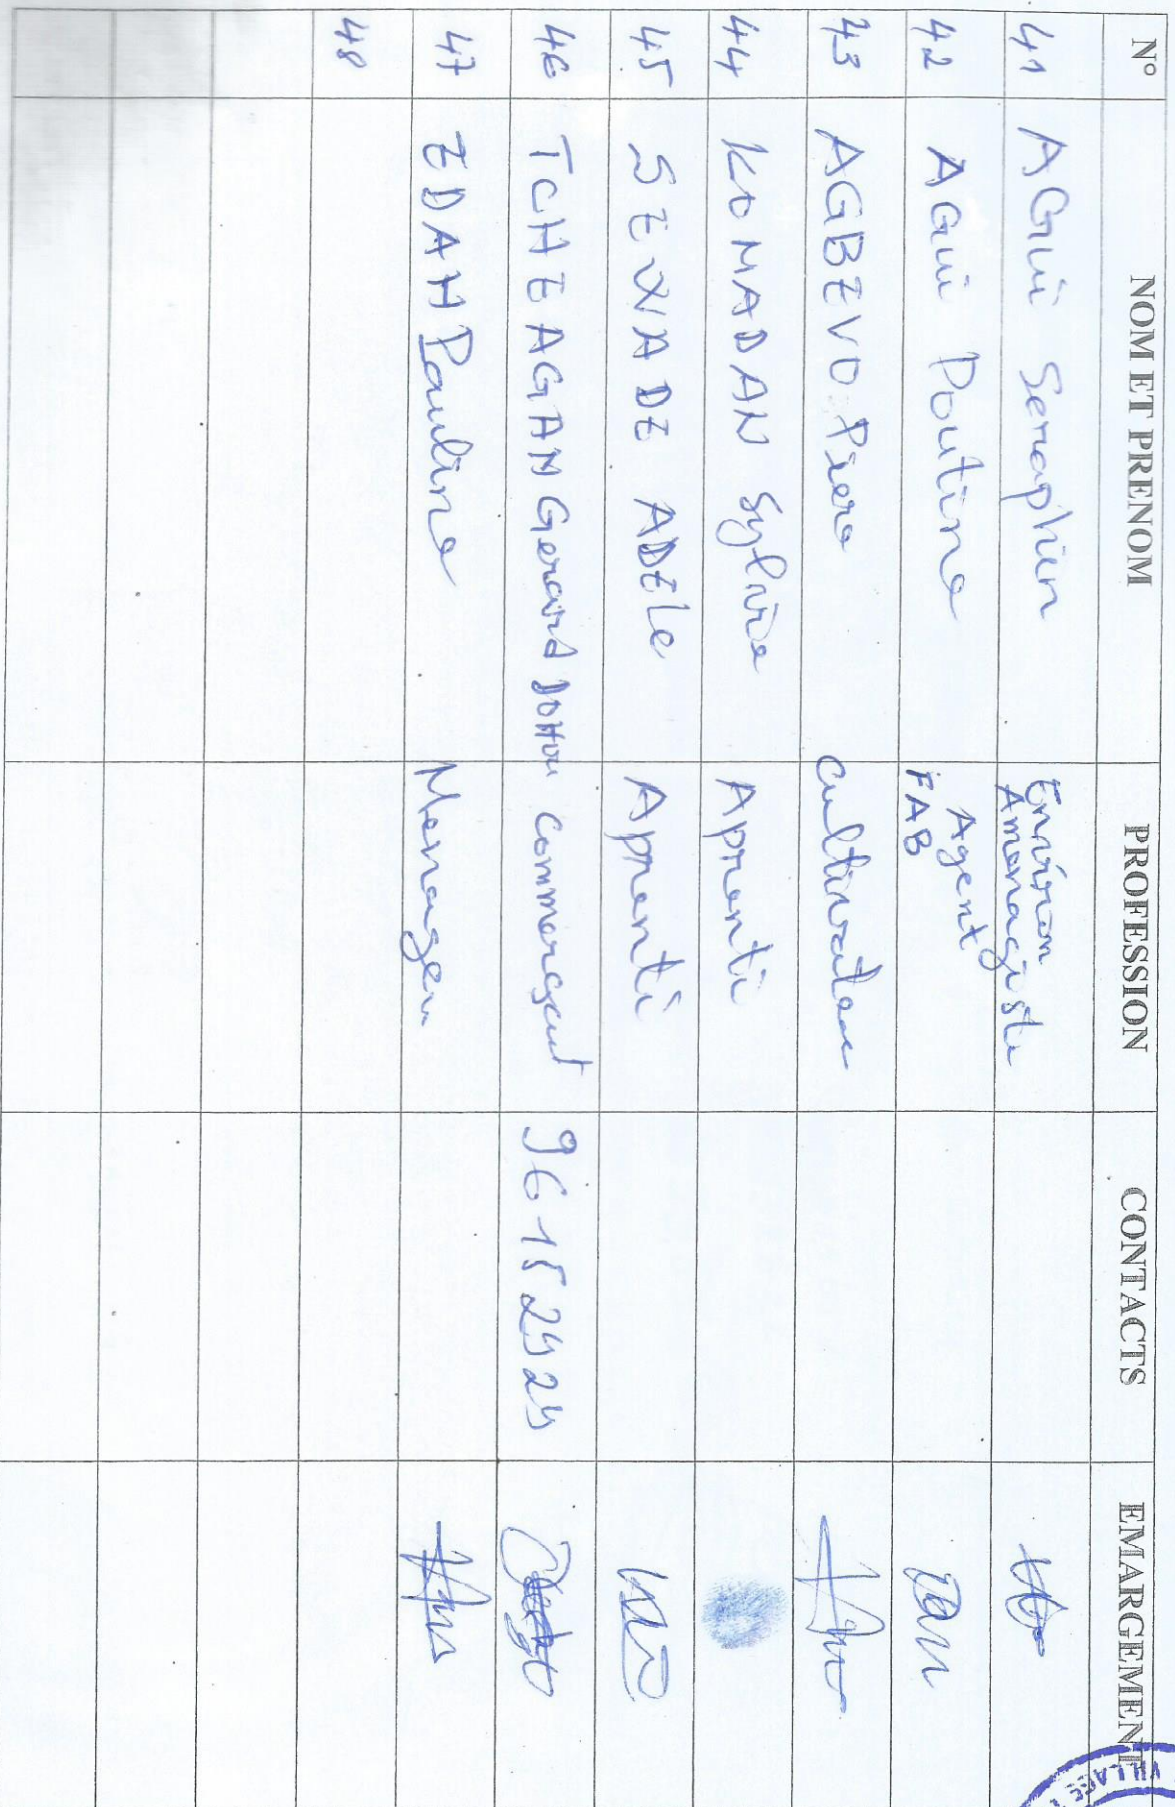 N° NOM ET PRENOM PROFESSION CONTACTS EMARGEMENT
41 AGUI Seraphin Environ Amenagiste
42 AGUI Poutine Agent FAB
43 AGBEVO Piero cultivateur
44 KOMADAN Sylvie Aprenti
45 SEWADE ADELE Aprenti
46 TCHEAGAM Gerard DOHOU commerçant 96152929
47 EDAH Pauline Menagere
48
VILLAGE